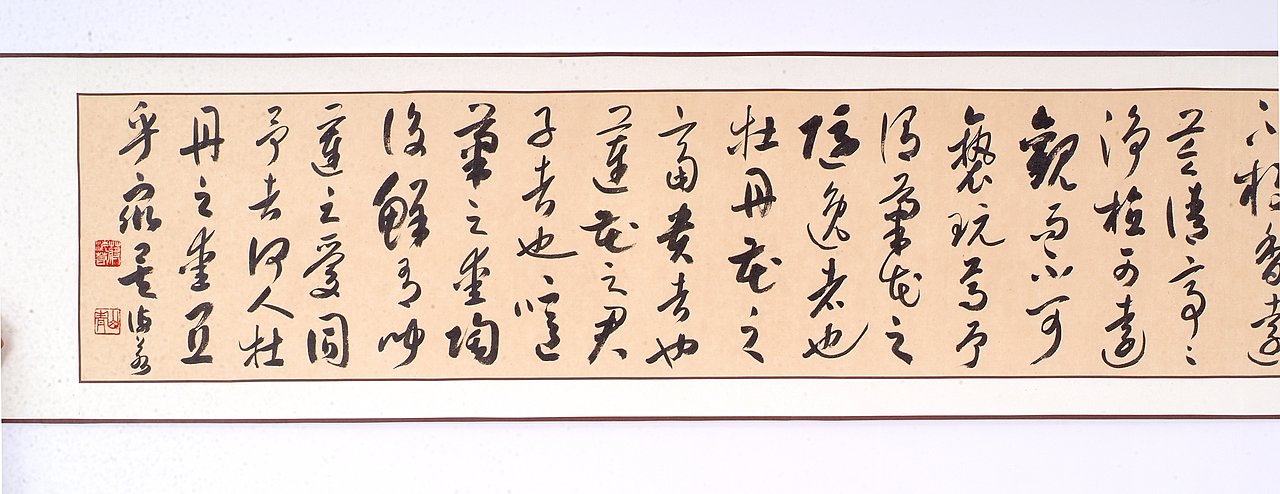 不枝香遠
益清亭々
淨植可遠
觀而不可
褻玩焉予
謂菊花之
隱逸者也
牡丹花之
富貴者也
蓮花之君
子者也噫
菊之愛陶
後鮮有聞
蓮之愛同
予者何人牡
丹之愛宜
乎眾矣